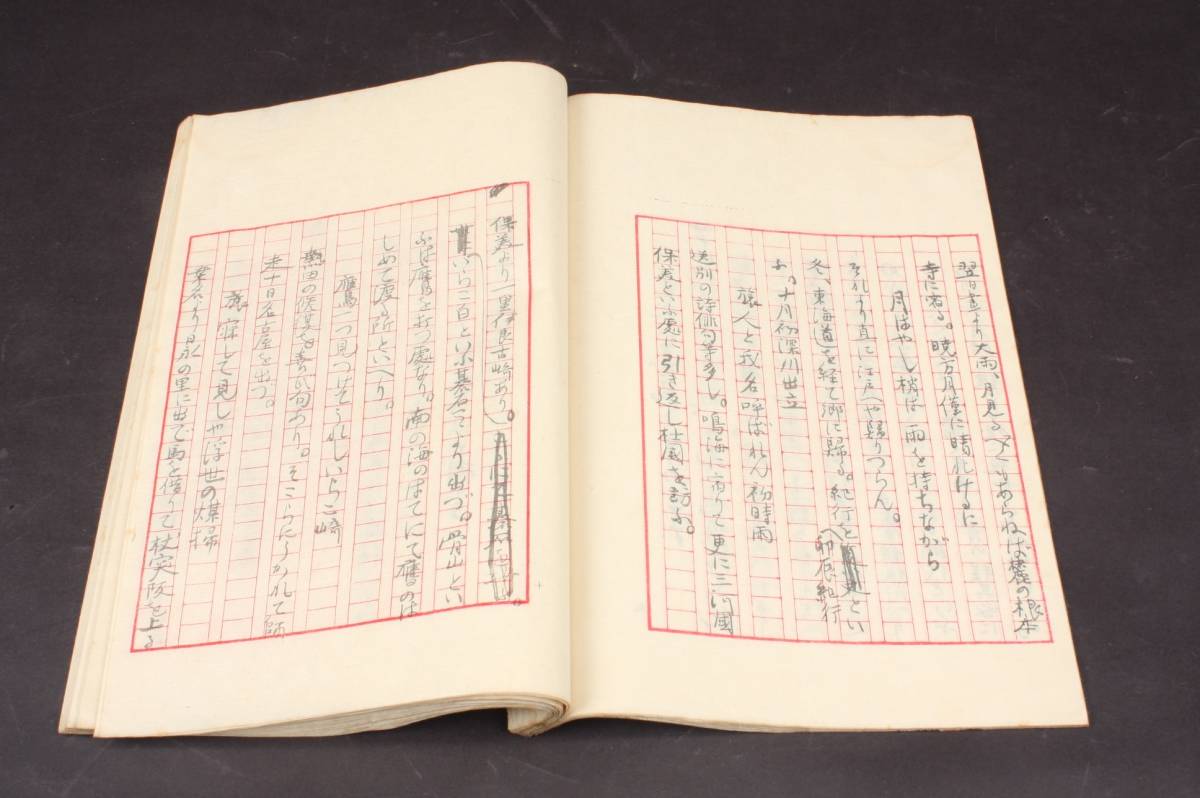 翌日晝より大雨、月見るべくもあらねば麓の根本
寺に宿る。暁方月僅に晴れけるに
月はやし梢は雨を持ちながら
それより直に江戸へや歸りつらん。
冬、東海道を経て郷に歸る。紀行を
卯辰紀行
といふ。十月初深川出立
旅人と我名呼ばれん初時雨
送別の詩俳句等多し。鳴海に宿りて更に三河國
保美といふ處に引き返し杜國を訪ふ。
保美より一里伊良古崎あり。
いらご白といふ碁石こゝより出づ。骨山とい
ふは鷹を打つ處なり。南の海のはてにて鷹のは
じめて渡る所といへり。
鷹一つ見つけてうれしいらご崎
熱田の修覆を
句あり。そこらにうかれて師
走十日名古屋を出づ。
旅寐して見しや浮世の煤掃
桑名より日永の里に出で馬を借りて杖突阪を上る